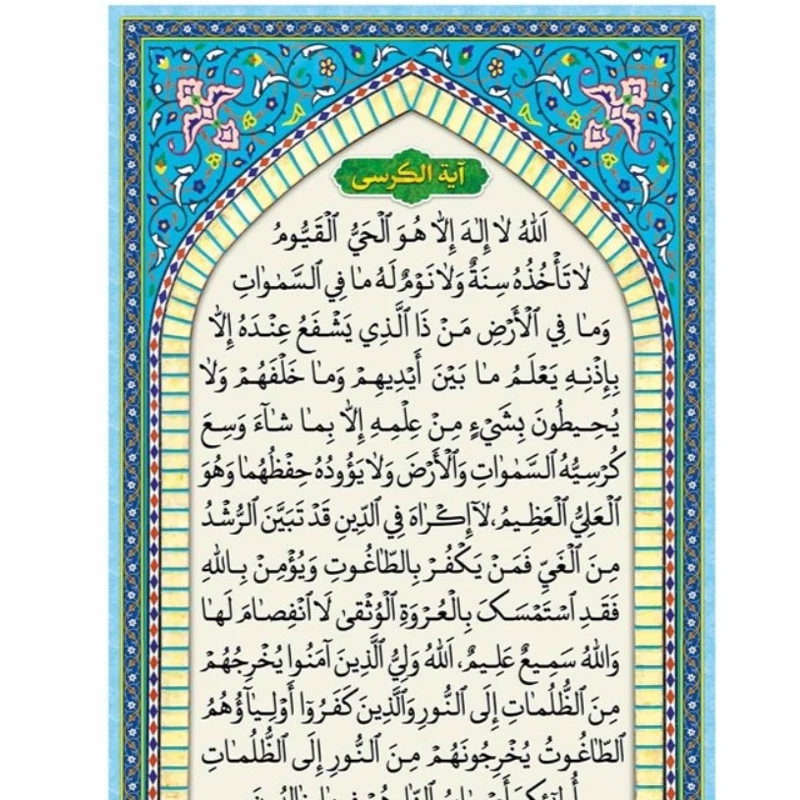 آية الكرسى
اَللهُ لا إِلٰهَ إِلّا هُوَ ٱلْحَيُّ ٱلْقَيُّومُ
لا تَأْخُذُهُ سِنَةٌ وَلا نَوْمٌ لَهُ ما فِي ٱلسَّمٰواتِ
وَما فِي ٱلْأَرْضِ مَنْ ذَا ٱلَّذِي يَشْفَعُ عِنْدَهُ إِلّا
بِإِذْنِهِ يَعْلَمُ ما بَيْنَ أَيْدِيهِمْ وَما خَلْفَهُمْ وَلا
يُحِيطُونَ بِشَيْءٍ مِنْ عِلْمِهِ إِلّا بِما شآءَ وَسِعَ
كُرْسِيُّهُ ٱلسَّمٰواتِ وَٱلْأَرْضَ وَلا يَؤُودُهُ حِفْظُهُما وَهُوَ
ٱلْعَلِيُّ ٱلْعَظِيمُ، لاۤ إِكْراهَ فِي ٱلدِّينِ قَدْ تَبَيَّنَ ٱلرُّشْدُ
مِنَ ٱلْغَيِّ فَمَنْ يَكْفُرْ بِالطّاغُوتِ وَيُؤْمِنْ بِاللهِ
فَقَدِ ٱسْتَمْسَكَ بِالْعُرْوَةِ ٱلْوُثْقىٰ لَا ٱنْفِصامَ لَها
وَاللهُ سَمِيعٌ عَلِيمٌ، اَللهُ وَلِيُّ ٱلَّذِينَ آمَنُوا يُخْرِجُهُمْ
مِنَ ٱلظُّلُماتِ إِلَى ٱلنُّورِ وَٱلَّذِينَ كَفَرُوٓا أَوْلِيآؤُهُمُ
ٱلطّاغُوتُ يُخْرِجُونَهُمْ مِنَ ٱلنُّورِ إِلَى ٱلظُّلُماتِ